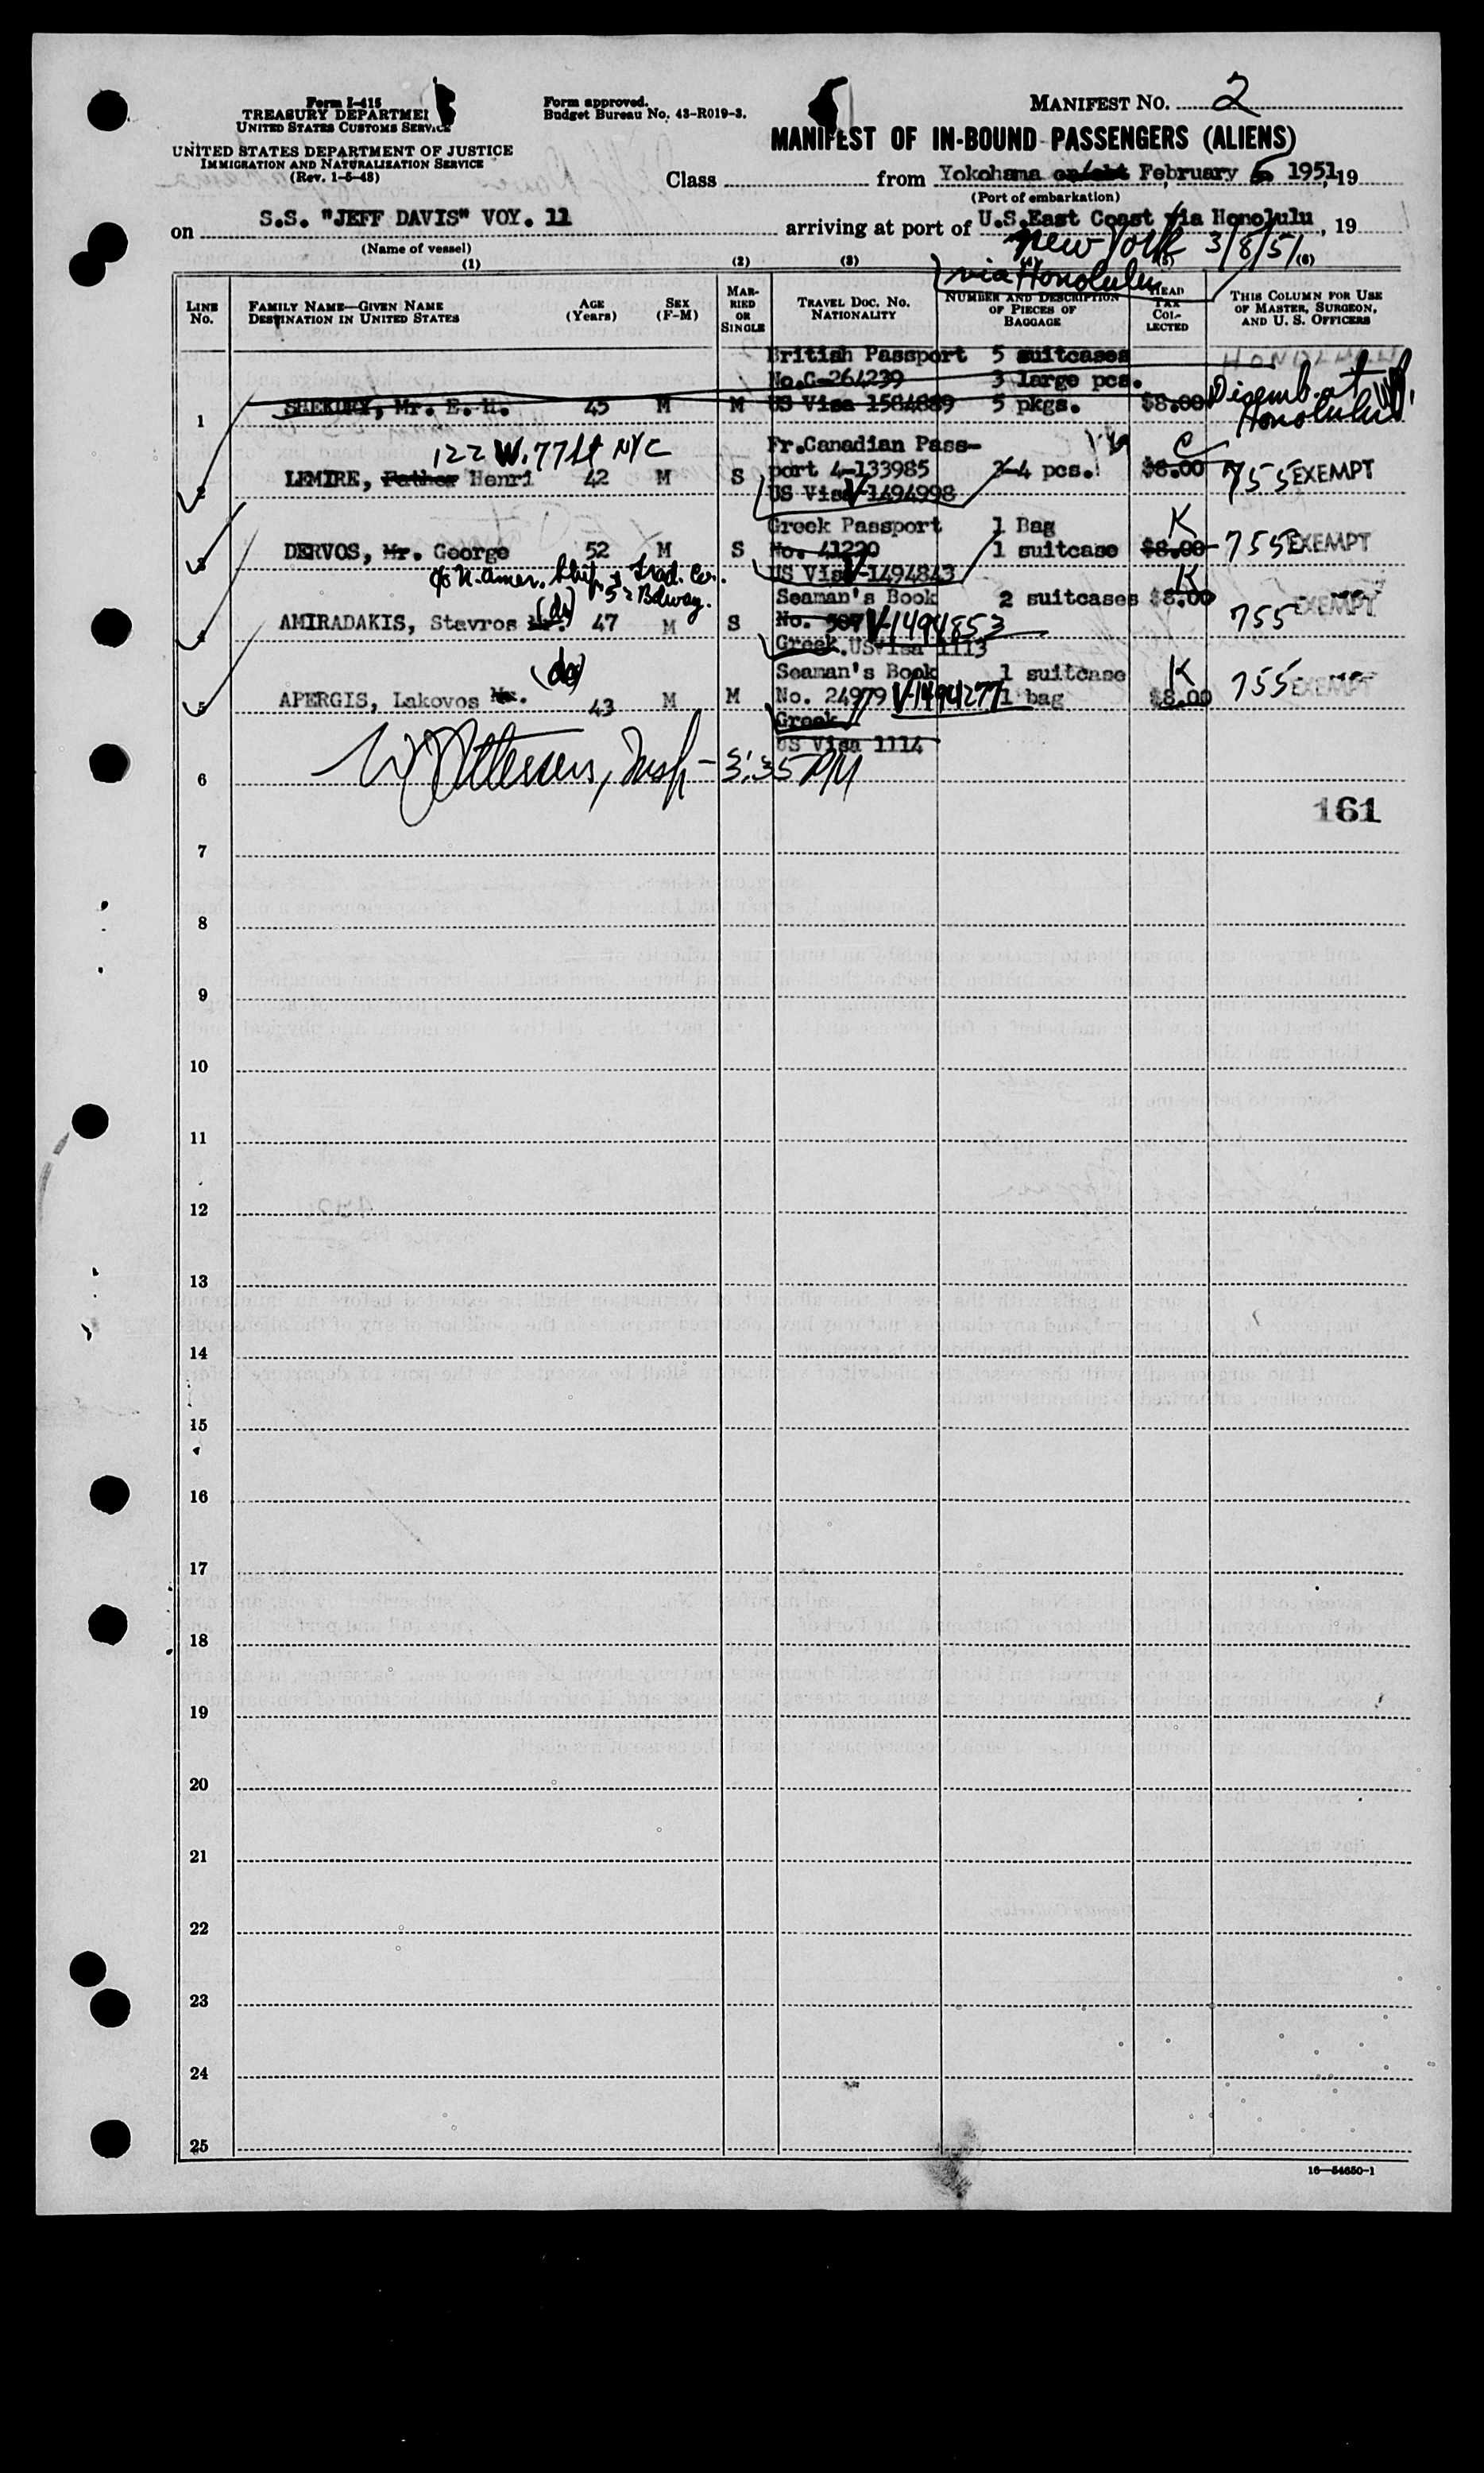 Form I-415
TREASURY DEPARTMENT
UNITED STATES CUSTOMS SERVICE
UNITED STATES DEPARTMENT OF JUSTICE
IMMIGRATION AND NATURALIZATION SERVICE
(Rev. 1-5-48)
Form approved.
Budget Bureau No. 43-R019-3.
MANIFEST NO. 2
MANIFEST OF IN-BOUND PASSENGERS (ALIENS)
Class from Yokohama February 1951, 19
(Port of embarkation)
on S.S. "JEFF DAVIS" VOY. 11 arriving at port of U.S.East Coast via Honolulu, 19
(Name of vessel)
New York 3/8/51
via Honolulu
(1) (2) (3) (4) (5) (6)
LINE No.
FAMILY NAME—GIVEN NAME
DESTINATION IN UNITED STATES
AGE (Years)
SEX (F-M)
MARRIED OR SINGLE
TRAVEL DOC. NO.
NATIONALITY
NUMBER AND DESCRIPTION OF PIECES OF BAGGAGE
HEAD TAX COLLECTED
THIS COLUMN FOR USE OF MASTER, SURGEON, AND U. S. OFFICERS
HONOLULU
British Passport 5 suitcases
No.C-264239 3 large pcs.
1 Mr. E. H. 45 M M US Visa 1584889 5 pkgs. $8.00 Disemb. at Honolulu
122 W. 77 St NYC
Fr.Canadian Pass-
port 4-133985
2 LEMIRE, Father Henri 42 M S US Visa V-1494998 2-4 pcs. $8.00 C 755 EXEMPT
Greek Passport 1 Bag
3 DERVOS, Mr. George 52 M S No. 41220 1 suitcase $8.00 K 755 EXEMPT
US Visa V-1494843
c/o N. Amer. Ship & Trad. Co.
52 Bdway.
Seaman's Book 2 suitcases
4 AMIRADAKIS, Stavros Mr. (do) 47 M S No. 507 V-1494853 $8.00 K 755 EXEMPT
Greek. US Visa 1113
Seaman's Book 1 suitcase
5 APERGIS, Lakovos Mr. (do) 43 M M No. 24979 V-1494277 1 bag $8.00 K 755 EXEMPT
Greek
US Visa 1114
6 Insp - 3:35 PM
161
7
8
9
10
11
12
13
14
15
16
17
18
19
20
21
22
23
24
25
16—54650-1